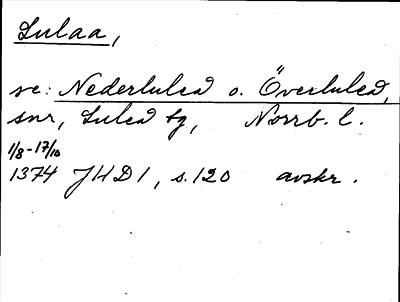 Lulaa,
se: Nederluleå o. Överluleå,
snr, Luleå tg, Norrb. l.
1/8-17/10
1374 JHD 1, s. 120 avskr.